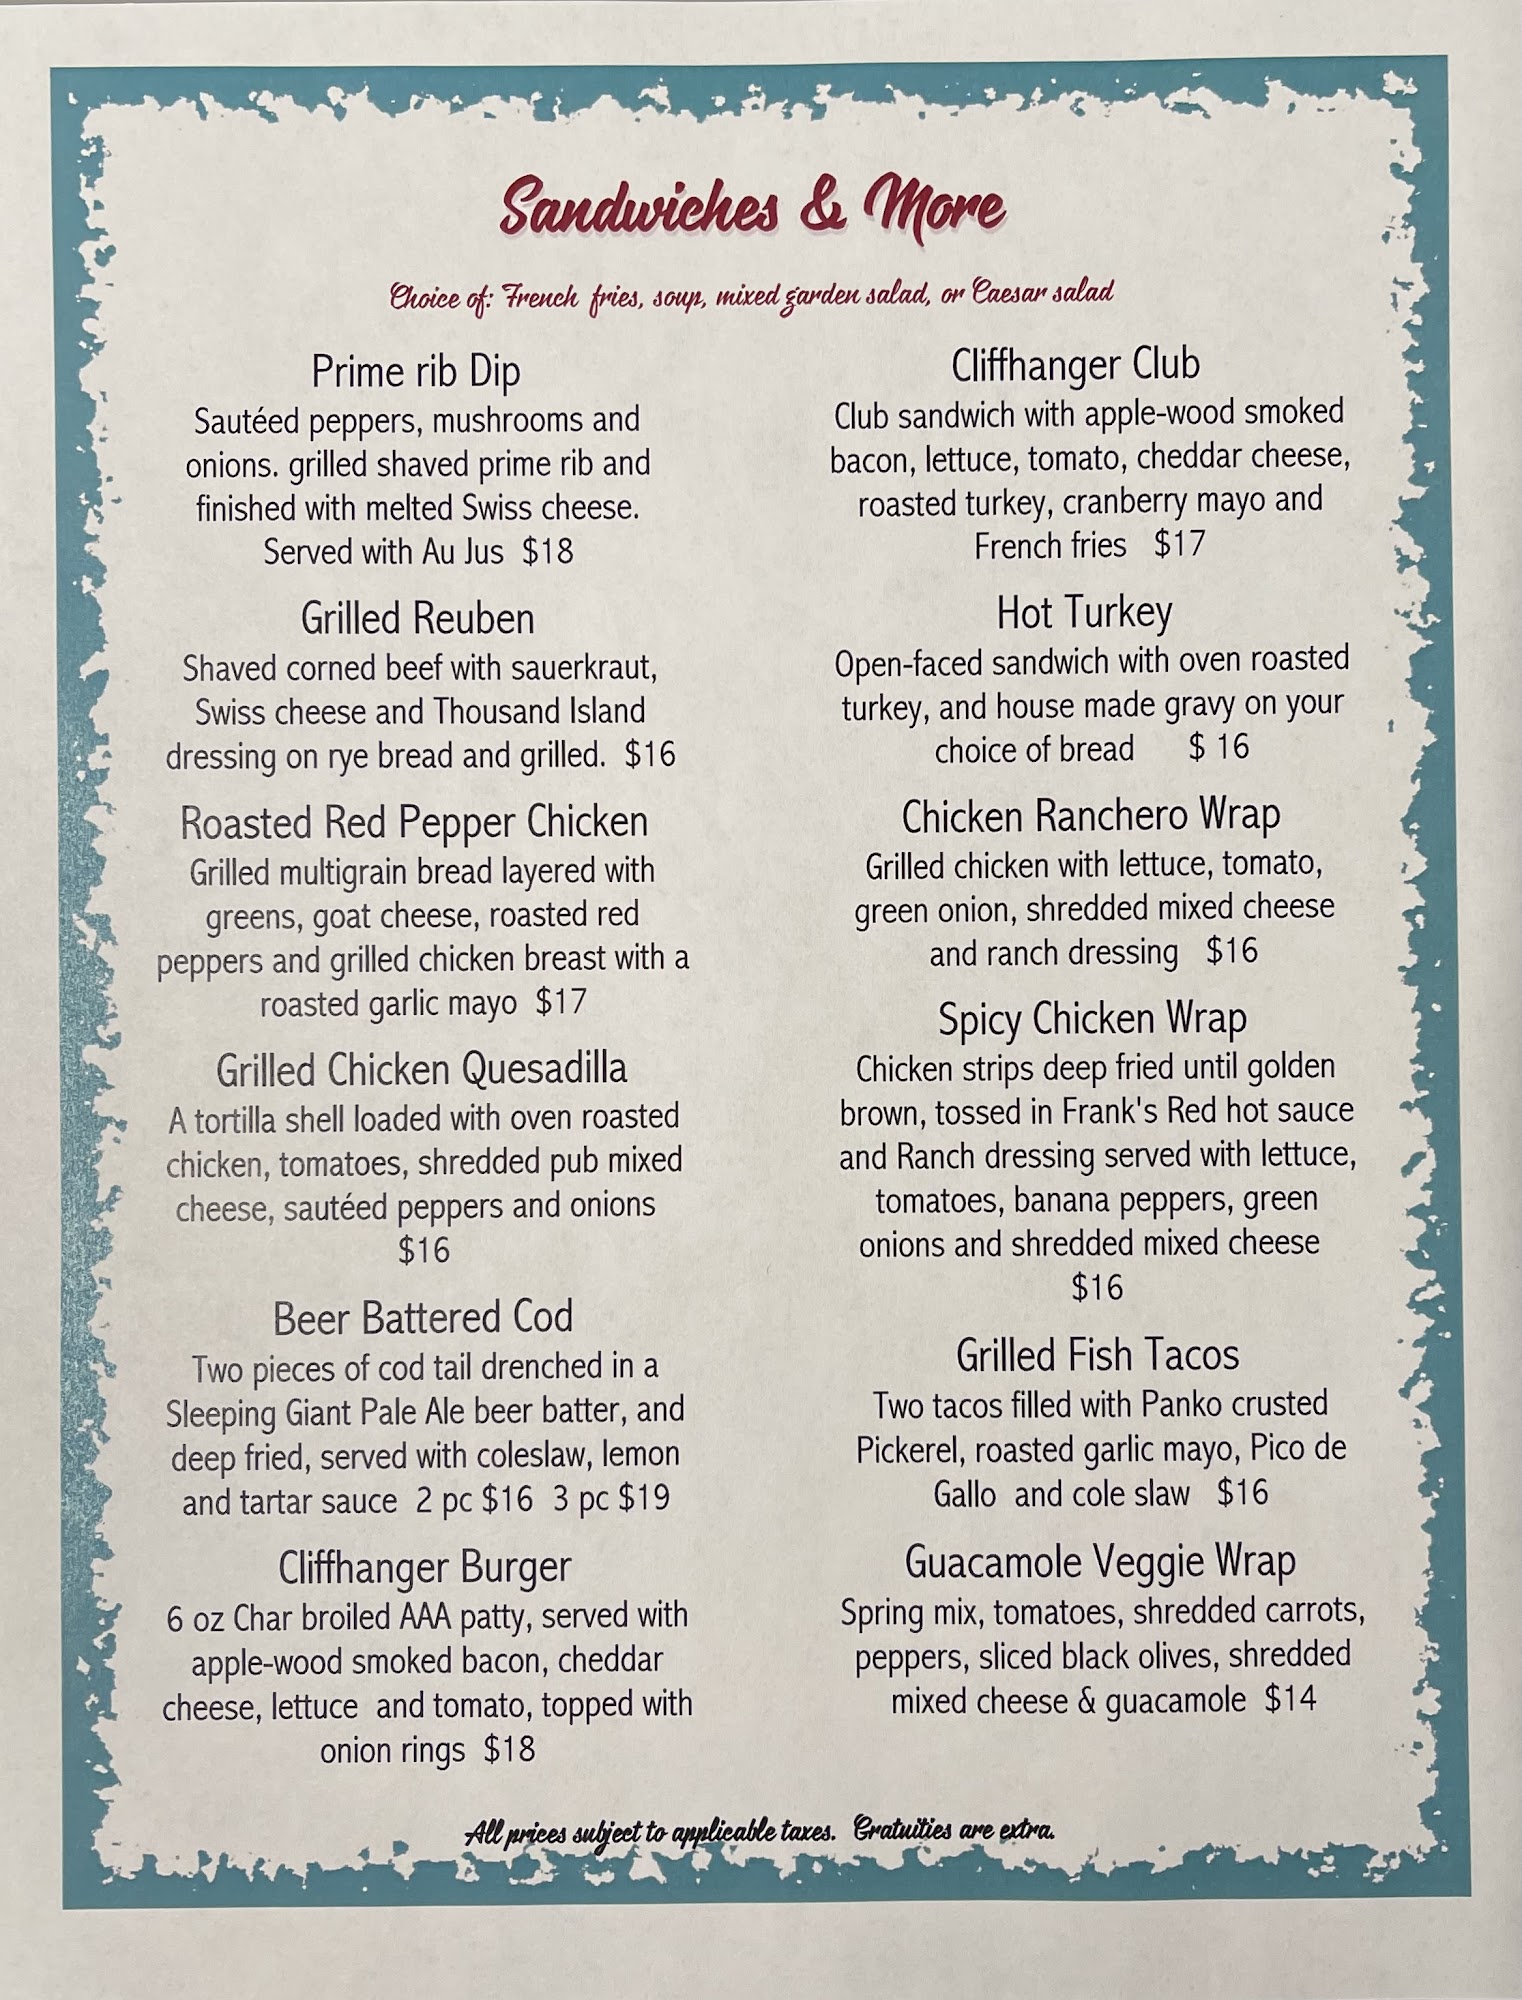 Sandwiches & More
Choice of: French fries, soup, mixed garden salad, or Caesar salad
Prime rib Dip
Sautéed peppers, mushrooms and
onions. grilled shaved prime rib and
finished with melted Swiss cheese.
Served with Au Jus $18
Grilled Reuben
Shaved corned beef with sauerkraut,
Swiss cheese and Thousand Island
dressing on rye bread and grilled. $16
Roasted Red Pepper Chicken
Grilled multigrain bread layered with
greens, goat cheese, roasted red
peppers and grilled chicken breast with a
roasted garlic mayo $17
Grilled Chicken Quesadilla
A tortilla shell loaded with oven roasted
chicken, tomatoes, shredded pub mixed
cheese, sautéed peppers and onions
$16
Beer Battered Cod
Two pieces of cod tail drenched in a
Sleeping Giant Pale Ale beer batter, and
deep fried, served with coleslaw, lemon
and tartar sauce 2 pc $16 3 pc $19
Cliffhanger Burger
6 oz Char broiled AAA patty, served with
apple-wood smoked bacon, cheddar
cheese, lettuce and tomato, topped with
onion rings $18
Cliffhanger Club
Club sandwich with apple-wood smoked
bacon, lettuce, tomato, cheddar cheese,
roasted turkey, cranberry mayo and
French fries $17
Hot Turkey
Open-faced sandwich with oven roasted
turkey, and house made gravy on your
choice of bread $ 16
Chicken Ranchero Wrap
Grilled chicken with lettuce, tomato,
green onion, shredded mixed cheese
and ranch dressing $16
Spicy Chicken Wrap
Chicken strips deep fried until golden
brown, tossed in Frank's Red hot sauce
and Ranch dressing served with lettuce,
tomatoes, banana peppers, green
onions and shredded mixed cheese
$16
Grilled Fish Tacos
Two tacos filled with Panko crusted
Pickerel, roasted garlic mayo, Pico de
Gallo and cole slaw $16
Guacamole Veggie Wrap
Spring mix, tomatoes, shredded carrots,
peppers, sliced black olives, shredded
mixed cheese & guacamole $14
All prices subject to applicable taxes. Gratuities are extra.